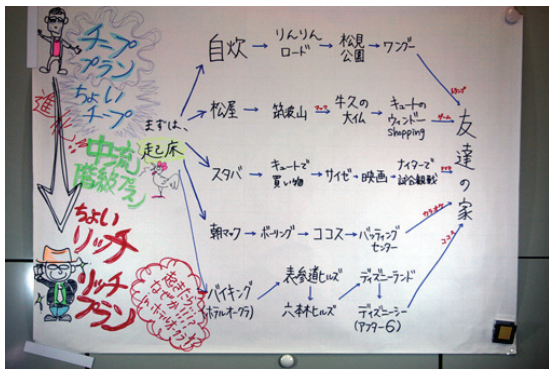 チープ
プラン
ちょい
チープ
進化!!
中流
階級プラン
ちょい
リッチ
リッチ
プラン
まずは、
起き床
自炊 → りんりん
ロード → 松見
公園 → ワングー
松屋 → 筑波山 → 牛久の
大仏 → キュートの
ウィンドー
shopping
スタバ → キュートで
買い物 → サイゼ → 映画 → ナイターで
試合観戦
朝マック → ボーリング → ココス → バッティング
センター
バイキング
(ホテルオークラ) → 表参道ヒルズ → 六本木ヒルズ → ディズニーランド → ディズニーシー
(アフター6)
トランプ
ゲーム
カラオケ
ココス
友達の家
起きたら!!!?
なぜか…
inホテルオークラ